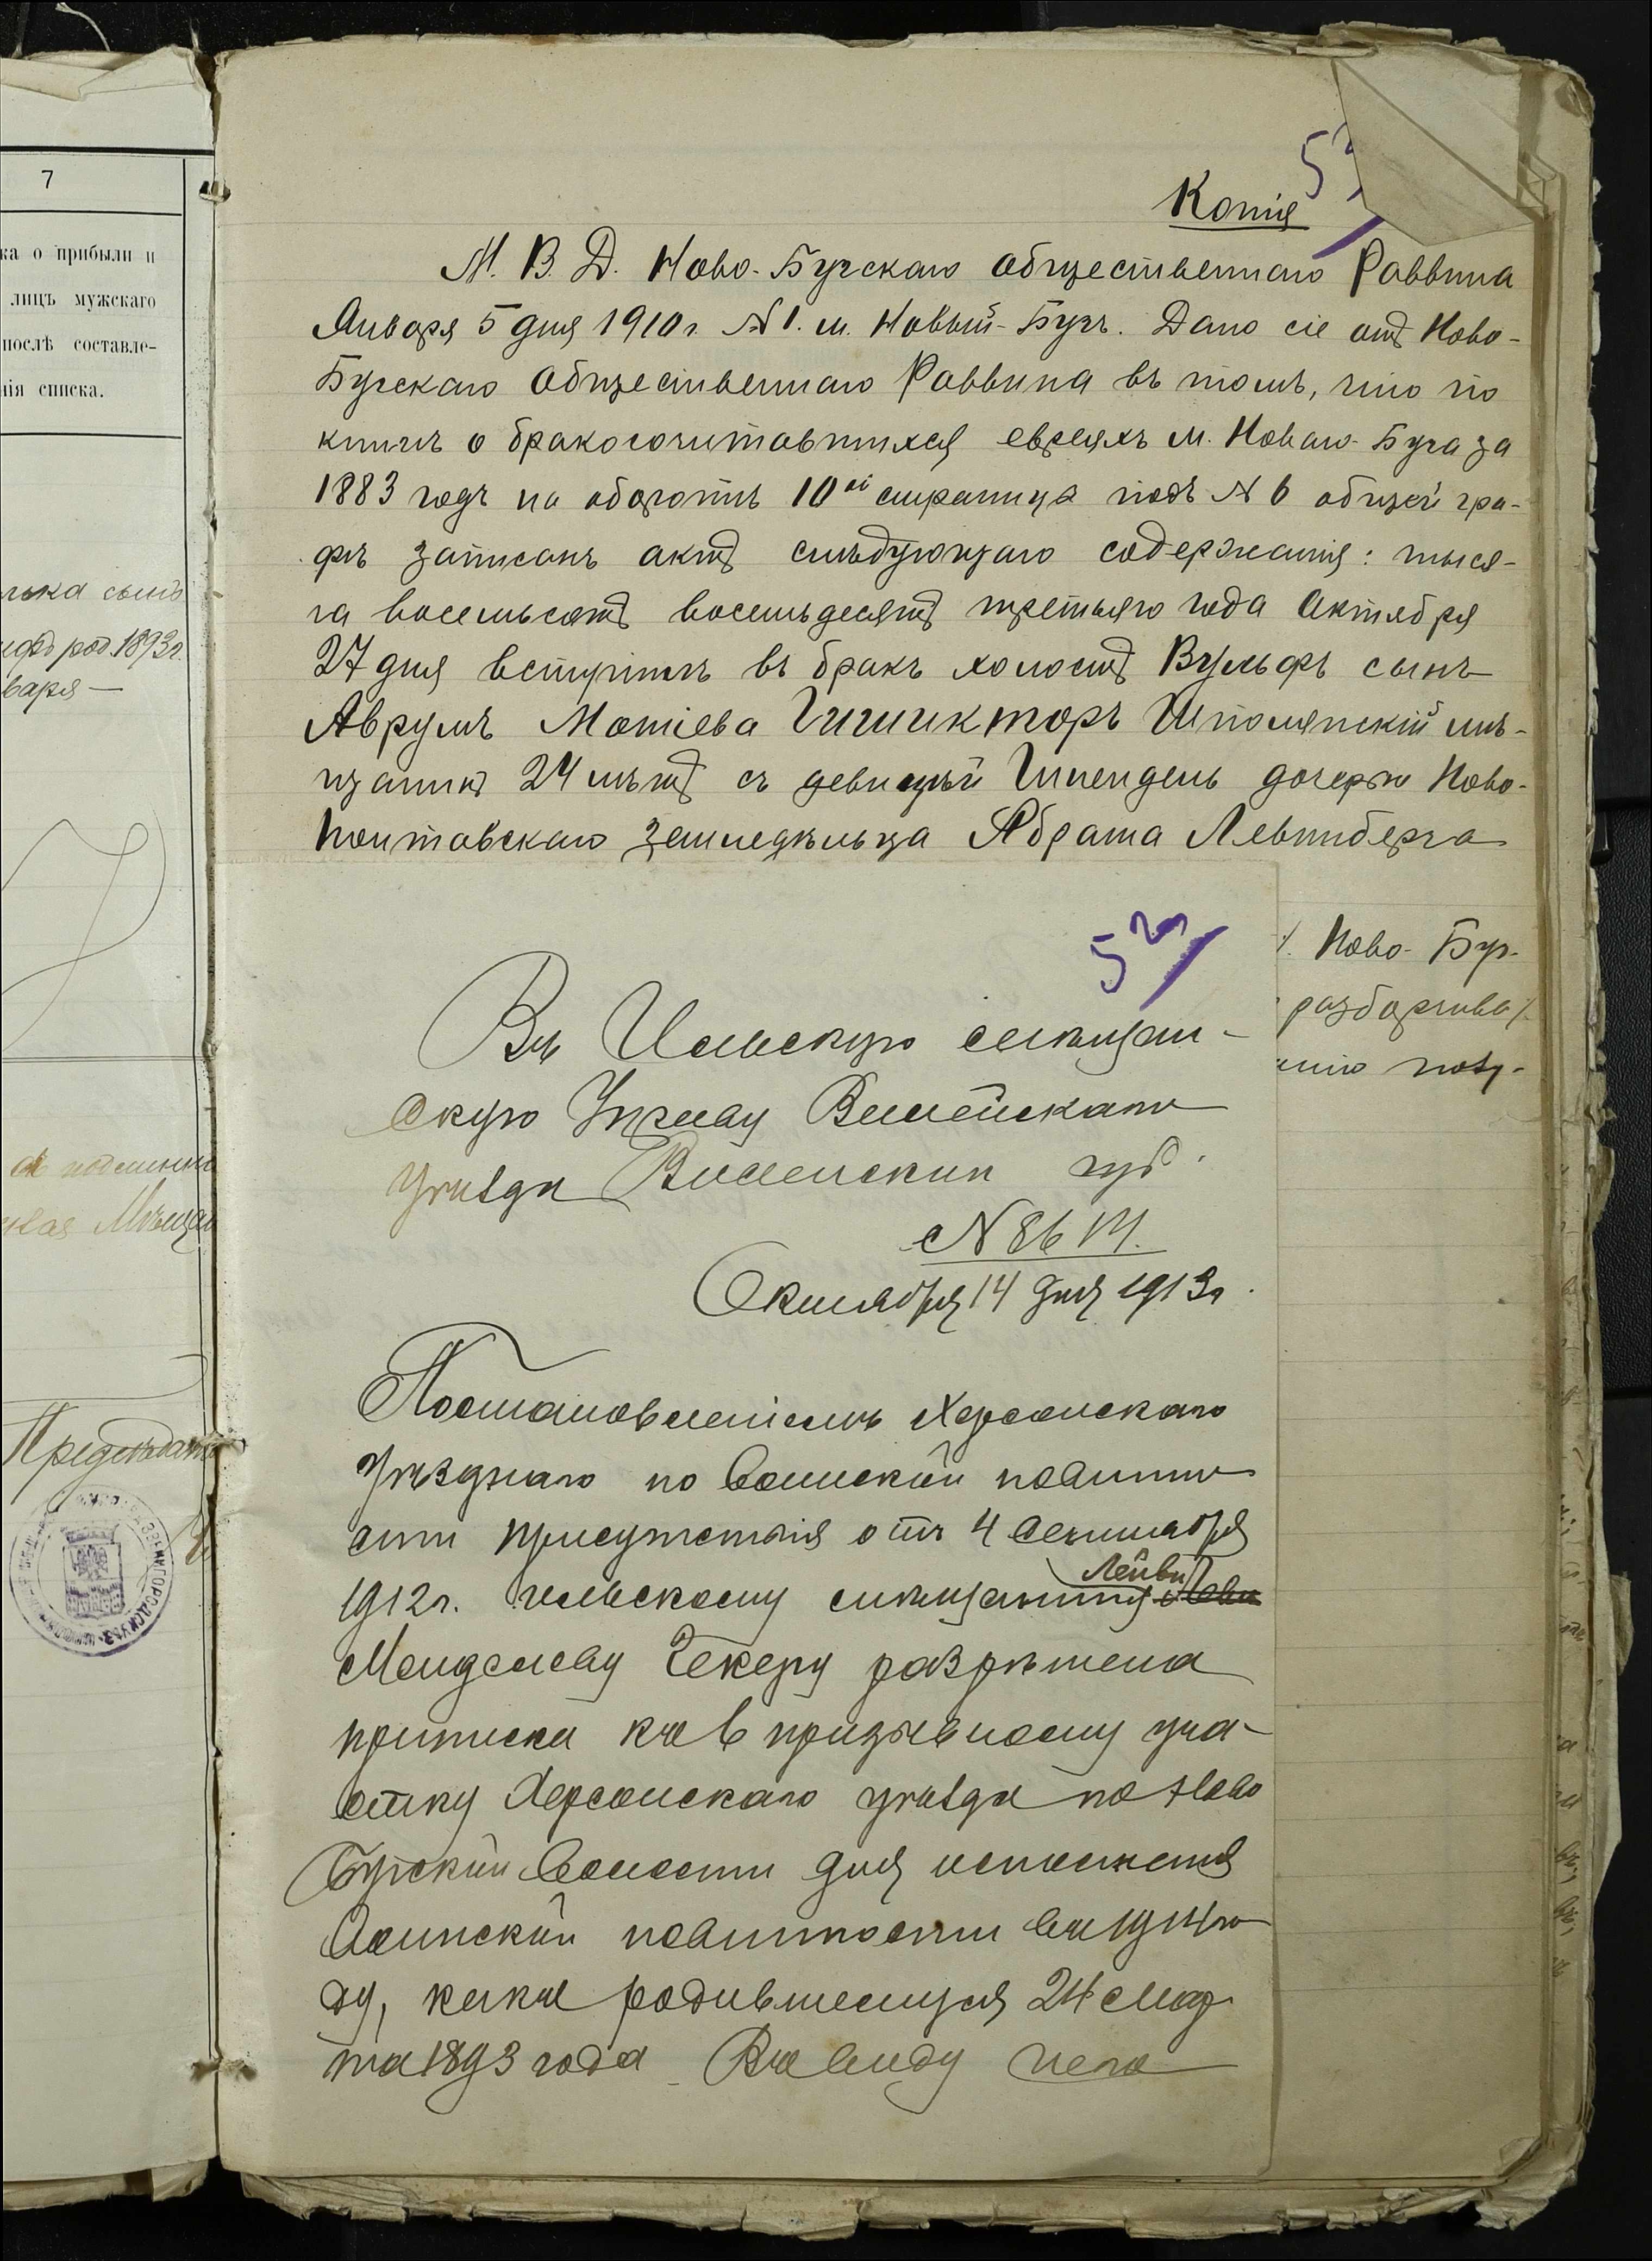 7
ка о прибыли и
лицъ мужскаго
послѣ составле-
нія списка.
сынъ
род. 1893г.
варя —
Мѣщан
Предсѣдат
Копія
М. В. Д. Ново-Бугскаго общественнаго Раввина
Января 5 дня 1910 г. № 1. м. Новый-Бугъ. Дано сіе отъ Ново-
Бугскаго Общественнаго Раввина въ томъ, что по
книгѣ о бракосочитавшихся евреяхъ м. Новаго-Буга за
1883 годъ на оборотѣ 10ой страницы подъ № 6 общей гра-
фѣ записанъ актъ слѣдующаго содержанія: тыся-
ча восемьсотъ восемьдесятъ третьяго года Октября
27 дня вступилъ въ бракъ холостъ Вульфъ сынъ
Аврумъ Мотіева Шпольянскій мѣ-
щанинъ 24 лѣтъ съ девицѣй Шпендель дочерью Ново-
Полтавскаго Земледѣльца Абрама Левинберга
Ново-Буг-
разборчива/.
нію
57
Въ Ильскую мѣщан-
скую Управу Вилейскаго
Уѣзда Виленской губ.
№ 8614.
Октября 14 дня 1913г.
Постановленіемъ Херсонскаго
Уѣзднаго по Воинской повинно
сти Присутствія отъ 4 Сентября
1912г. Ильскому мѣщанину Лейви
Менделеву Чекеру разрѣшена
приписка къ 6 призывному уча-
стку Херсонскаго уѣзда по Ново
Бугской Волости для исполненія
Воинской повинности въ 1914 го
ду, какъ родившемуся 24 Мар
та 1893 года Въ виду чего